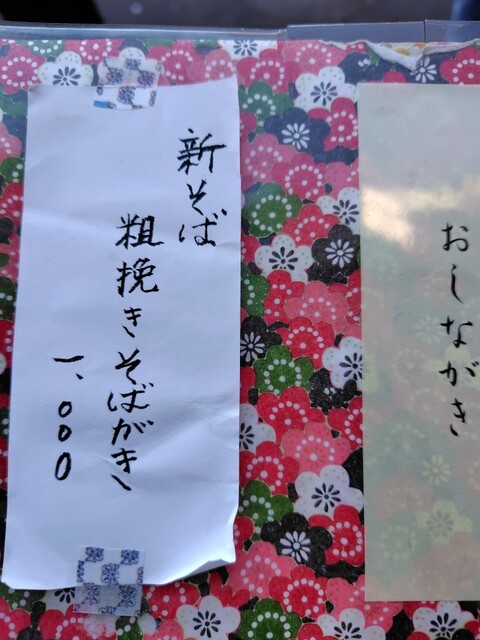 おしながき
新そば
粗挽きそばがき
一、000